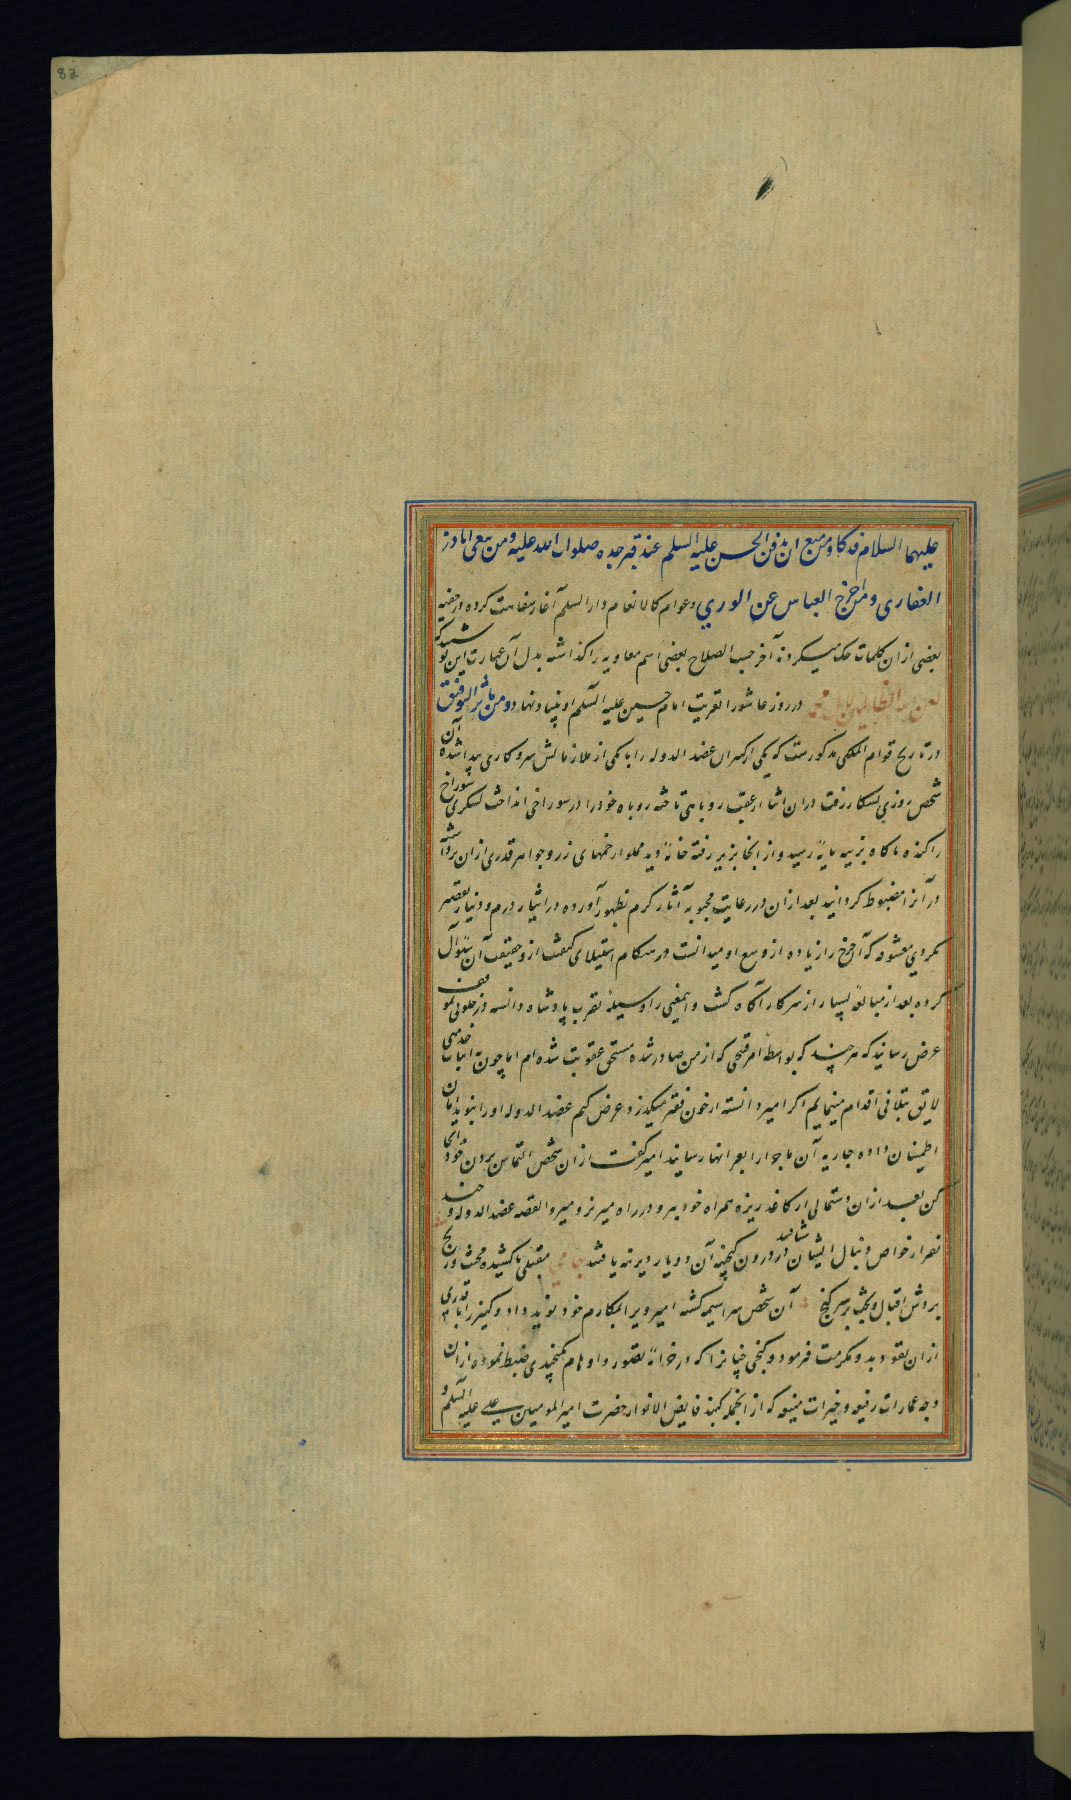 82
علیهما السلام فدکا و من منع ان یدفن الحسن علیه السلم عند قبر جده صلوات الله علیه و من نفی ابا ذر
الغفاری و من اخرج العباس عن الوری و عوام کالانعام دار السلم آغاز سفاهت کرده در خفیه
بعضی از ان کلمات حک میکردند آخر حسب الصلاح بعضی اسم معاویه را کذاشته بدل آن عبارت این نوشتند که
لعن الله الظالمین لال محمد در روز عاشورا تعزیت امام حسین علیه السلم او بنیاد نهاد و من مآثر التوفیق
در تاریخ قوام الملکی مذکورست که یکی از پسران عضد الدوله را با یکی از ملازمانش سر و کاری پیدا شده آن
شخص روزی بشکار رفت در ان اثنا از عقب روباهی تاخته روباه خود را در سوراخی انداخت لشکری سوراخ
را کنده ناکاه بزینه پایهٔ رسید و از انجا بزیر رفته خانهٔ دید مملو از خمهای زر و جواهر قدری از ان برداشته
در آنرا مضبوط کردانید بعد از ان در رعایت محبوبه آثار کرم بظهور آورده در ایثار درم و دینار تقصیر
نکردی معشوقه که آن خرج را زیاده از وسع او میدانست در هنکام استیلای کیفیت از و حقیقت آن سؤال
کرده بعد از مبالغهٔ بسیار از سر کار آکاه کشت و اینمعنی را وسیلهٔ تقرب پادشاه دانسته در خلوتی بموقف
عرض رسانید که هر چند که بواسطهٔ امر قبیحی که از من صادر شده مستحق عقوبت شده ام اما چون اینک خدمتی
لایق بتلافی اقدام مینمایم اکر امیر دانسته از خون فقیر میکذرد عرض کنم عضد الدوله او را بنوید امان
اطمینان داده جاریه آن ماجرا را بعز انها رسانید امیر کفت از ان شخص التماس بردن خود انجا
کن بعد از ان دستمالی از کاغذ ریزه همراه خود ببر و در راه میریز و میرو القصه عضد الدوله و چند
نفر از خواص دنبال ایشان شتافته در درون کنجینه آن دو یار دیرینه یافتند مقبلی ناکشیده محنت و رنج
بر وش اقبال و بخت بر سر کنج آن شخص سراسیمه کشته امیر ویرا بمکارم خود نوید داد و کنیز را با قدری
از ان نقود بدو مکرمت فرمود و کنجی چنانرا که در خزانهٔ تصور و اوهام نکنجیدی ضبط نموده از ان
وجه عمارات رفیعه و خیرات منیعه که از انجمله کنبد فایض الانوار حضرت امیر المومنین علی علیه السلم و